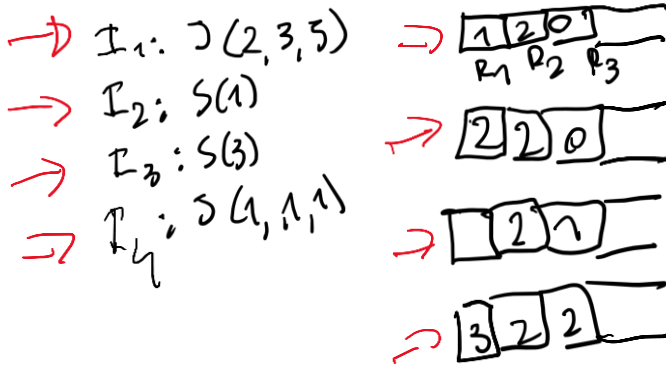 I₁: J(2,3,5)
I₂: S(1)
I₃: S(3)
I₄: J(1,1,1)
1 2 0
R₁ R₂ R₃
2 2 0
2 1
3 2 2